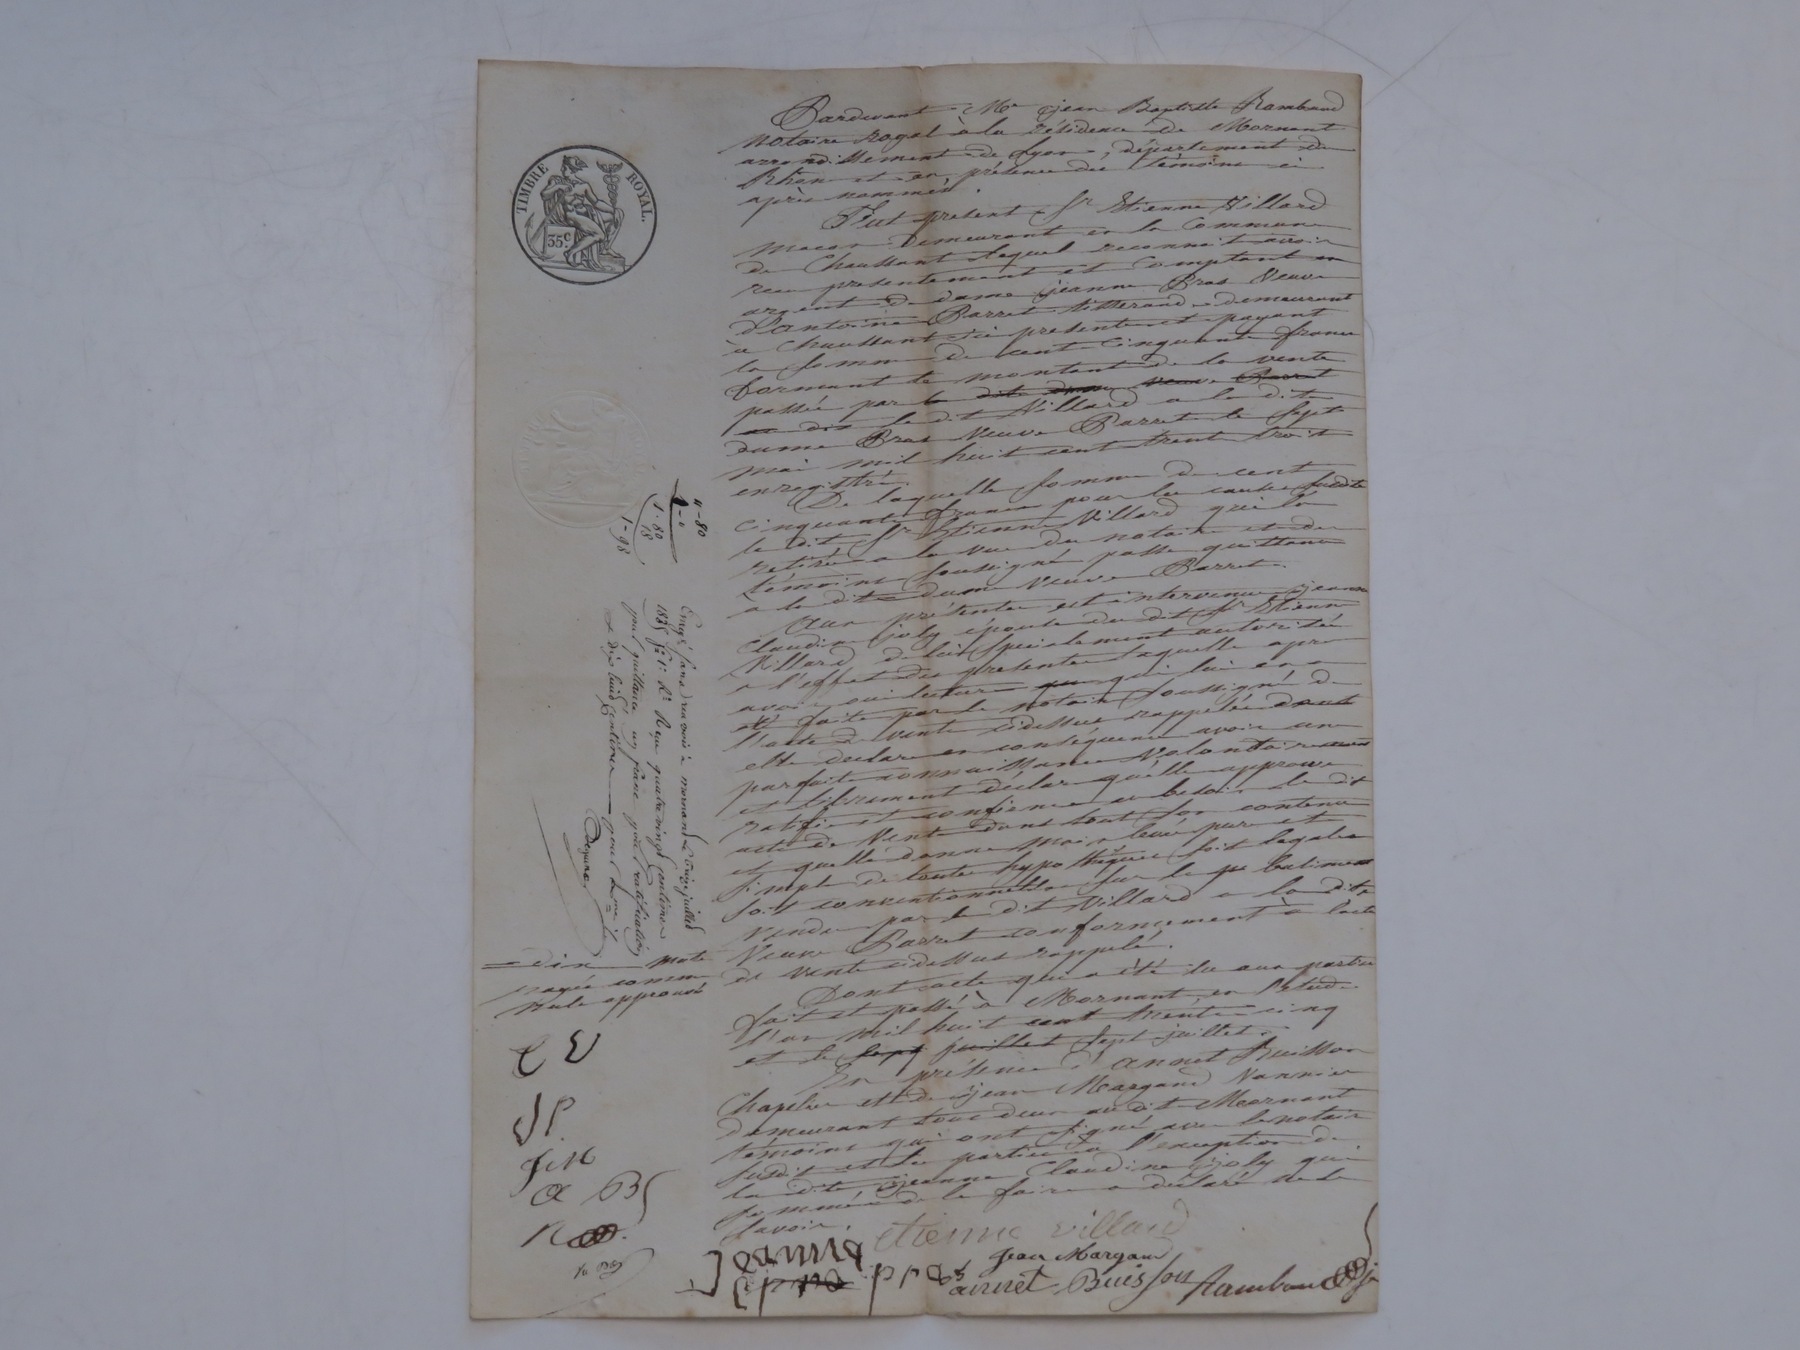 TIMBRE ROYAL.
35c
Pardevant Me jean Baptiste Rambaud
notaire royal à la résidence de Mornant
arrondissement de Lyon, département du
Rhône et en présence des témoins ci
après nommés.
Fut présent Sr Etienne Villard
macon demeurant en la Commune
de Chaussant lequel reconnait avoir
recu presentement et comptant en
argent de dame jeanne Bras Veuve
d'antoine Barret demeurant
à Chaussant ici presente et payant
la somme de cent cinquante francs
formant le montant de la vente
passée par la dite dame veuve Barret
le dit Villard a la dite
dame Bras Veuve Barret le sept
mai mil huit cent trente trois
enregistré.
De laquelle somme de cent
cinquante francs pour les causes susdite
le dit Sr Etienne Villard qui l'a
retiré a la vue du notaire et des
témoins soussigné passe quittance
à la dite dame Veuve Barret.
Aux présentes est intervenue jeanne
Claudine joly épouse du dit Sr Etienne
Villard de lui spécialement autorisée
a l'effet des presentes laquelle apres
avoir oui lecture qui lui en a
été faite par le notaire soussigné de
l'acte de vente cidessus rappelée
elle declare en conséquence avoir une
parfaite connaissance Volontairement
et librement déclare qu'elle approuve
ratifie et confirme au besoin le dit
acte de Vente dans tout son contenu
et quelle donne main levée pure et
simple de toute hypothèque soit legales
soit conventionnelles sur le batiment
vendu par le dit Villard a la dite
Veuve Barret conformément à l'acte
de vente cidessus rappelé.
Dont acte qui a été lu aux parties
fait et passé à Mornant en l'étude
l'an mil huit cent trente cinq
et le sept juillet sept juillet.
En présence d'annet Buisson
Chapelier et de jean Margaud Vannier
demeurant tous deux au dit Mornant
témoins qui ont signé avec le notaire
susdit et les parties a l'exception de
la dite jeanne Claudine joly qui
sommée de le faire a déclaré ne le
savoir.
etienne villard
jean Margaud
annet Buisson
Rambaud
4-80
1.80
18
1-98
Enregé sans renvoi à mornant le treize juillet
1835 Reçu quatre vingt centimes
pour quittance un franc pour ratification
et dix huit centimes pour
dix mots
rayés comme
nuls approuvé
E V
J P.
J M
a B
R